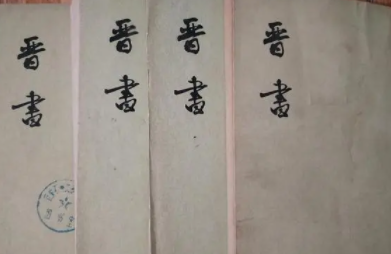 晋書
晋書
晋書
晋書